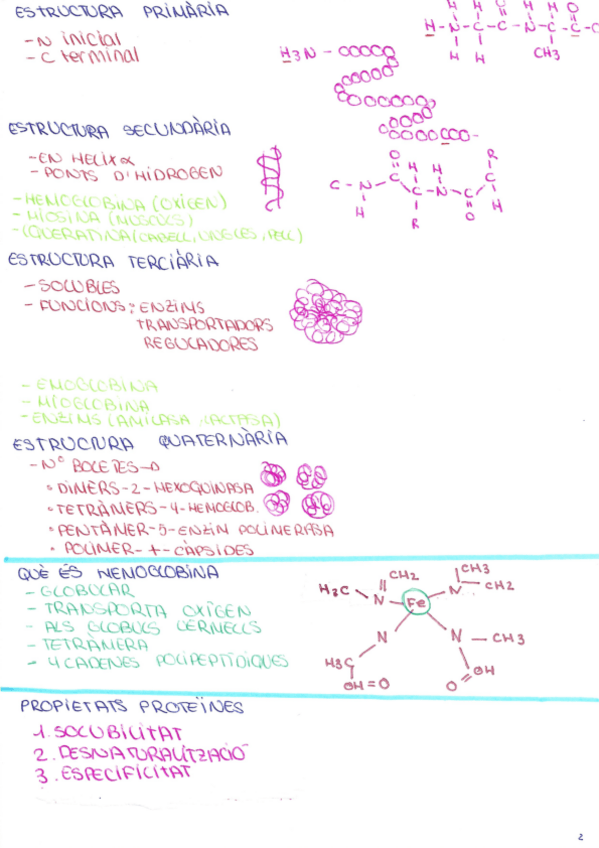 ESTRUCTURA PRIMÀRIA
-N inicial
-C terminal
H3N - 
ESTRUCTURA SECUNDÀRIA
-EN HELIX α
- PONTS D'HIDROGEN
-HEMOGLOBINA (OXÍGEN)
- MIOSINA (MUSCULS)
-(QUERATINA (CABELL, UNGLES, PELL)
ESTRUCTURA TERCIÀRIA
-SOLUBLES
- FUNCIONS: ENZIMS
TRANSPORTADORS
REGULADORES
- EMOGLOBINA
- MIOGLOBINA
-ENZIMS (AMILASA, LACTASA)
ESTRUCTURA QUATERNÀRIA
-Nº BOLETES→
• DÍMERS-2-HEXOQUINASA
• TETRÀMERS-4-HEMOGLOB.
• PENTÀMER-5-ENZIM POLIMERASA
• POLIMER-+-CÀPSIDES
QUÈ ÉS HEMOGLOBINA
- GLOBULAR
- TRANSPORTA OXÍGEN
- ALS GLOBULS VERMELLS
- TETRÀMERA
- 4 CADENES POLIPEPTÍDIQUES
H3C CH2 N Fe N CH3 CH2
N N - CH3
H3C OH=O O OH
PROPIETATS PROTEÏNES
1. SOLUBILITAT
2. DESNATURALITZACIÓ
3. ESPECIFICITAT
2